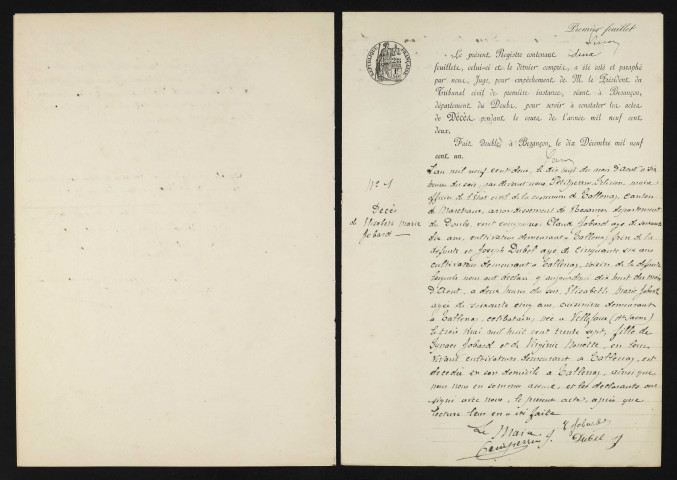 Premier feuillet
Le présent Registre contenant deux
feuillets, celui-ci et le dernier compris, a été coté et paraphé
par nous, Juge, pour empêchement de M. le Président du
Tribunal civil de première instance, séant à Besançon,
département du Doubs, pour servir à constater les actes
de Décès pendant le cours de l'année mil neuf cent
deux.
Fait double à Besançon, le dix Décembre mil neuf
cent un.
RÉPUBLIQUE FRANÇAISE
N° 1
Décès
de Elisabeth Marie
Jobard
L'an mil neuf cent deux, le dix huit du mois d'Août à six
heures du soir, par devant nous maire
officier de l'état civil de la commune de Tallenay, canton
de Marchaux, arrondissement de Besançon département
du Doubs, sont comparus Claude Jobard agé de soixante
dix ans, cultivateur demeurant à Tallenay, frère de la
défunte et Joseph Dubel agé de cinquante six ans
cultivateur demeurant à Tallenay, voisin de la défunte
lesquels nous ont déclaré q aujourd'hui dix huit du mois
d'Août, à deux heures du soir, Elisabeth Marie Jobard
agée de soixante cinq ans, cuisinière demeurant
à Tallenay, célibataire, née à (Hte Saône)
le trois Mai mil huit cent trente sept, fille de
Ignace Jobard et de Virginie en leur
vivant cultivateurs demeurant à Tallenay, est
décédée en son domicile à Tallenay, ainsi que
nous nous en sommes assuré, et les déclarants ont
signé avec nous, le présent acte, après que
lecture leur en a été faite
Le Maire
Jobard
Dubel J